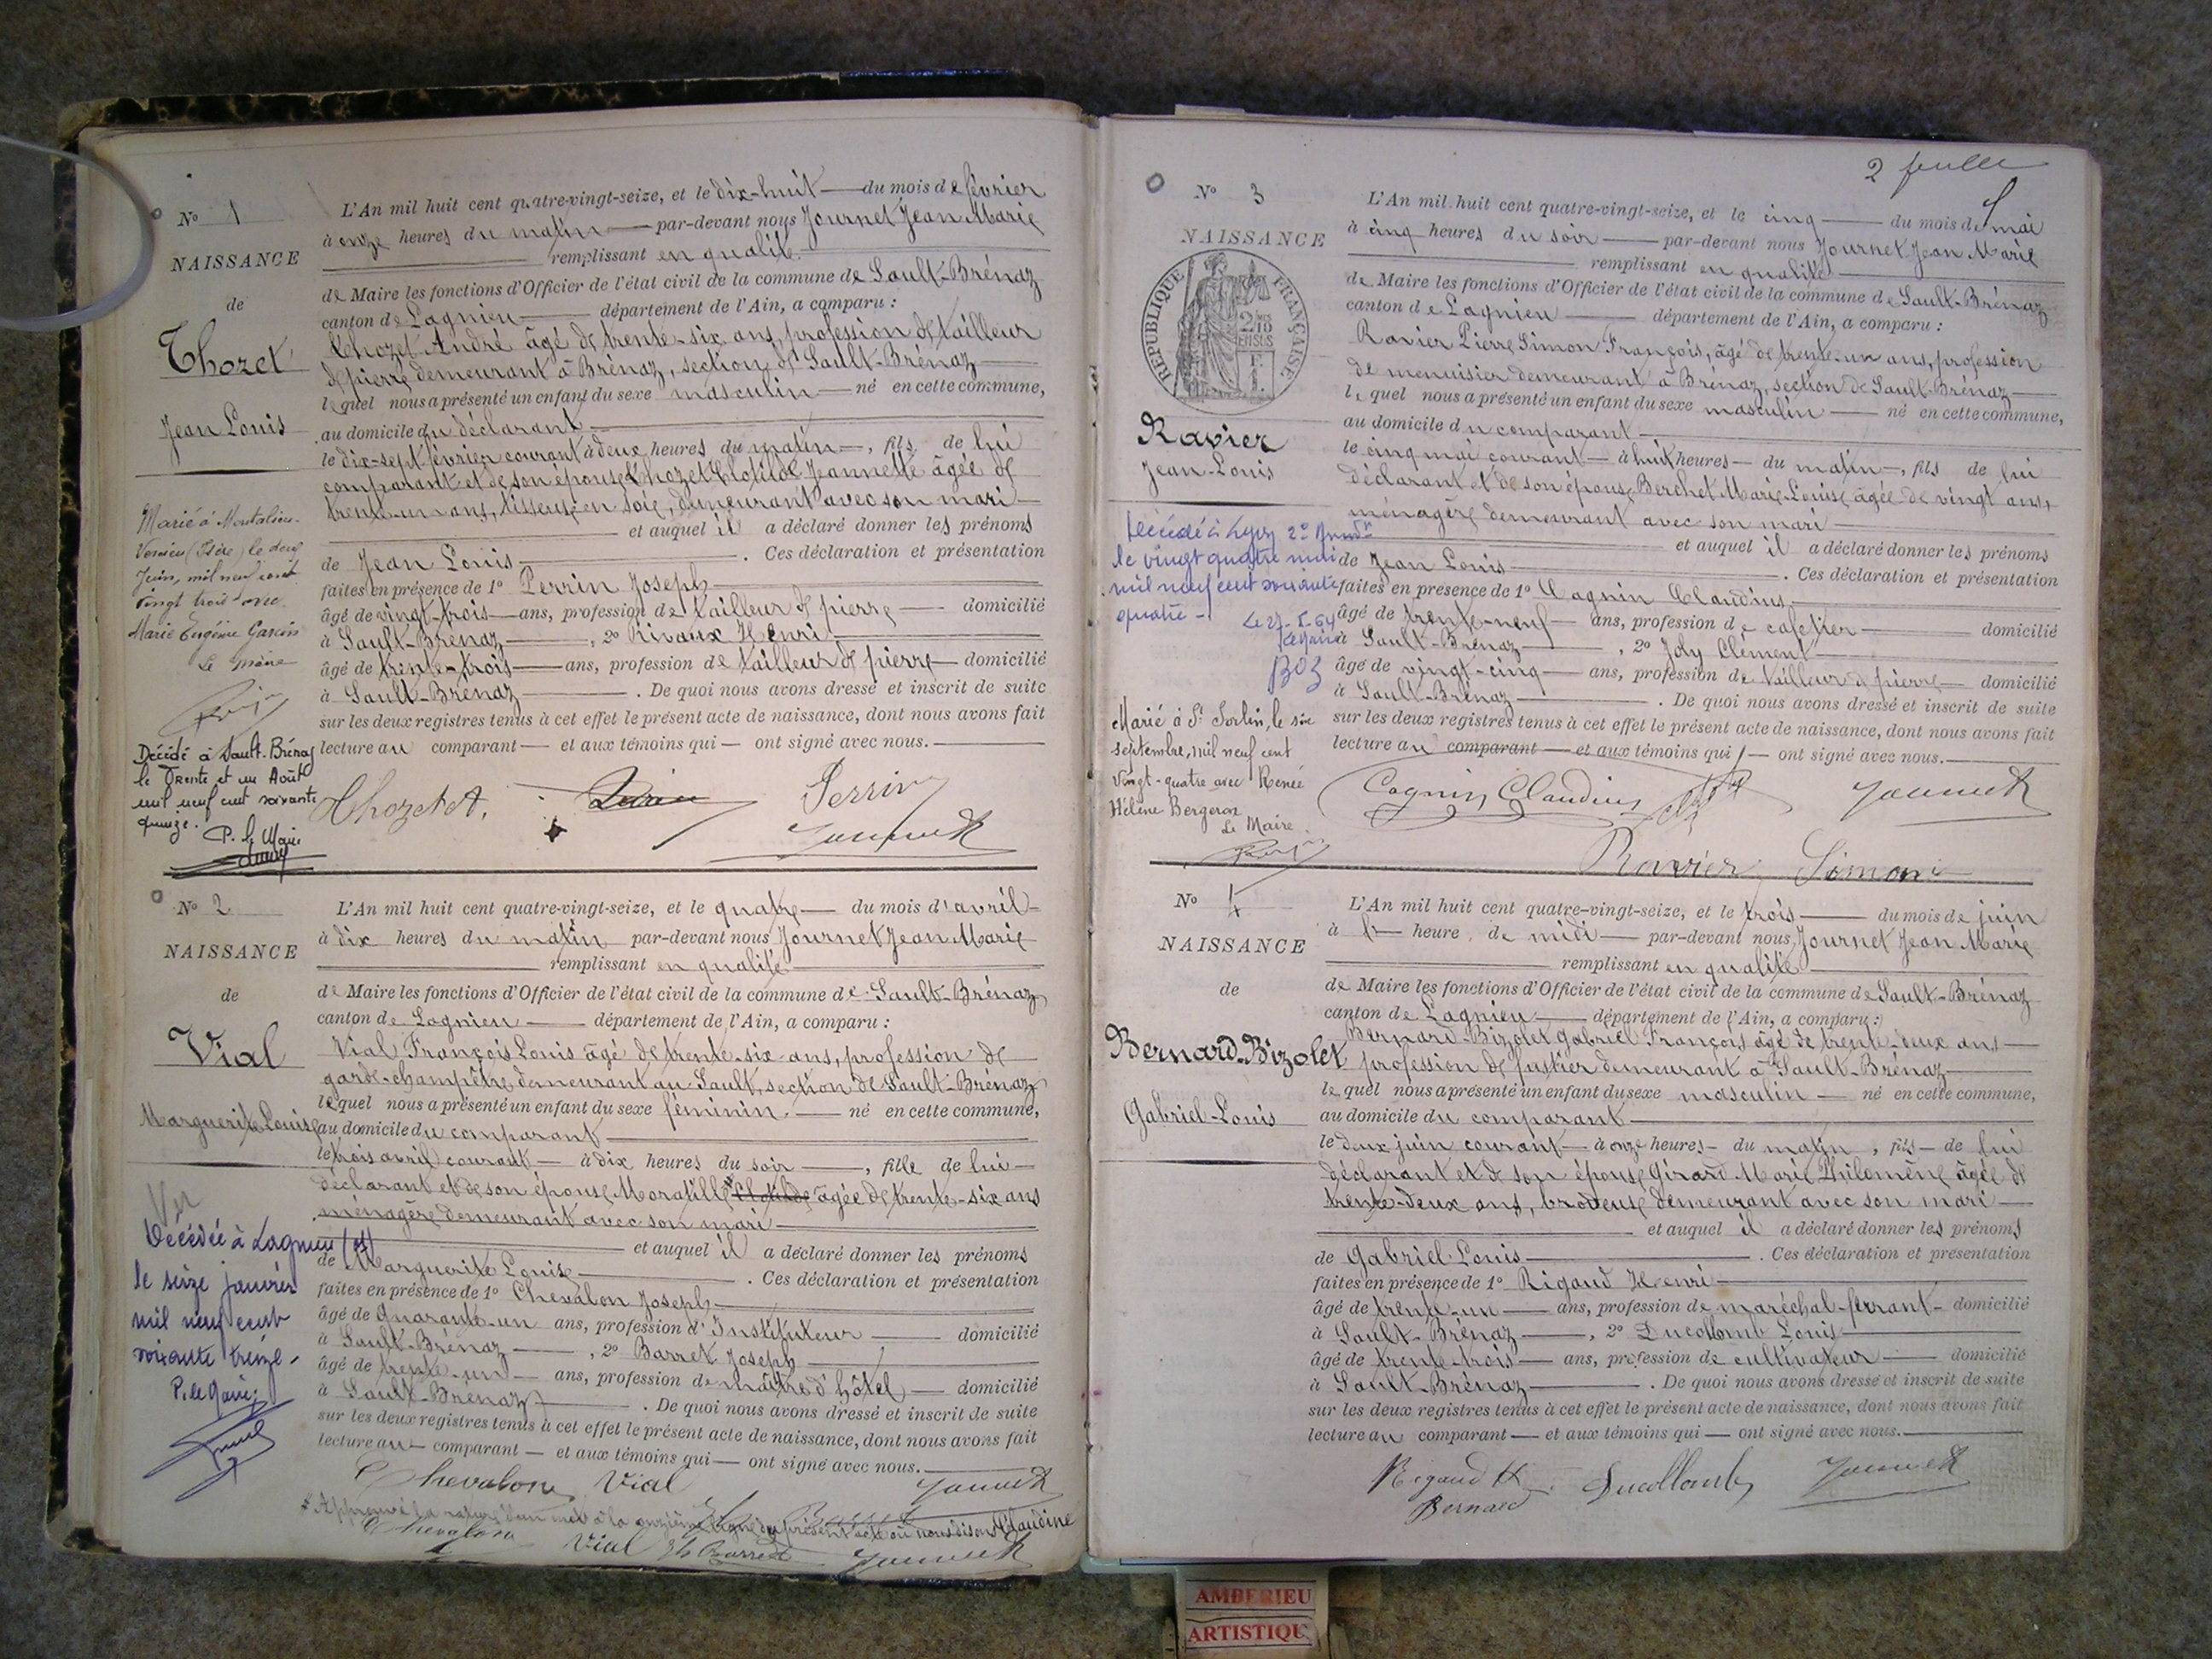 N° 1
NAISSANCE
de
Thozet
Jean Louis
Marié à Montalieu-
Vercieu (Isère) le deux
Juin, mil neuf cent
vingt trois avec
Marie Eugénie
Le Maire
Décédé à Sault-Brénaz
le Trente et un Août
mil neuf cent soixante
quinze.
P. le Maire
L'An mil huit cent quatre-vingt-seize, et le dix-huit du mois de février
à onze heures du matin par-devant nous Journet Jean Marie
remplissant en qualité
de Maire les fonctions d'Officier de l'état civil de la commune de Sault-Brénaz
canton de Lagnieu département de l'Ain, a comparu :
Thozet André âgé de trente-six ans, profession de tailleur
de pierre demeurant à Brénaz, section de Sault-Brénaz
lequel nous a présenté un enfant du sexe masculin né en cette commune,
au domicile du déclarant
le dix-sept février courant à deux heures du matin, fils de lui
comparant et de son épouse Thozet Clotilde Jeannette âgée de
trente-un ans, tisseuse en soie, demeurant avec son mari
et auquel il a déclaré donner les prénoms
de Jean Louis. Ces déclaration et présentation
faites en présence de 1° Perrin Joseph
âgé de vingt-trois ans, profession de tailleur de pierre domicilié
à Sault-Brénaz, 2° Rivaux Henri
âgé de trente-trois ans, profession de tailleur de pierre domicilié
à Sault-Brénaz. De quoi nous avons dressé et inscrit de suite
sur les deux registres tenus à cet effet le présent acte de naissance, dont nous avons fait
lecture au comparant et aux témoins qui ont signé avec nous.
Thozet A. Perrin
Journet
N° 2
NAISSANCE
de
Vial
Marguerite Louise
Vu
Décédée à Lagnieu (01)
le seize janvier
mil neuf cent
soixante treize.
P. le Maire
L'An mil huit cent quatre-vingt-seize, et le quatre du mois d'avril
à dix heures du matin par-devant nous Journet Jean Marie
remplissant en qualité
de Maire les fonctions d'Officier de l'état civil de la commune de Sault-Brénaz
canton de Lagnieu département de l'Ain, a comparu :
Vial François Louis âgé de trente-six ans, profession de
garde-champêtre demeurant au Sault, section de Sault-Brénaz
lequel nous a présenté un enfant du sexe féminin né en cette commune,
au domicile du comparant
le trois avril courant à dix heures du soir, fille de lui
déclarant et de son épouse Moratille âgée de trente-six ans
ménagère demeurant avec son mari
et auquel il a déclaré donner les prénoms
de Marguerite Louise. Ces déclaration et présentation
faites en présence de 1° Chevalon Joseph
âgé de quarante-un ans, profession d'Instituteur domicilié
à Sault-Brénaz, 2° Barret Joseph
âgé de trente-un ans, profession de maître d'hôtel domicilié
à Sault-Brénaz. De quoi nous avons dressé et inscrit de suite
sur les deux registres tenus à cet effet le présent acte de naissance, dont nous avons fait
lecture au comparant et aux témoins qui ont signé avec nous.
Chevalon Vial Journet
Barret
* Approuvé la rature d'un mot à la onzième ligne du présent acte où nous disons Claudine
Chevalon Vial Barret Journet
2 feuille
N° 3
NAISSANCE
RÉPUBLIQUE FRANÇAISE
Ravier
Jean-Louis
Décédé à Lyon 2e Arrondt
le vingt quatre mai
mil neuf cent soixante
quatre -
Le 27-5-64
Le Maire
Marié à St Sorlin, le six
septembre, mil neuf cent
vingt-quatre avec Renée
Hélène Bergeron
Le Maire.
L'An mil huit cent quatre-vingt-seize, et le cinq du mois de mai
à cinq heures du soir par-devant nous Journet Jean Marie
remplissant en qualité
de Maire les fonctions d'Officier de l'état civil de la commune de Sault-Brénaz
canton de Lagnieu département de l'Ain, a comparu :
Ravier Pierre Simon François, âgé de trente-un ans, profession
de menuisier demeurant à Brénaz, section de Sault-Brénaz
lequel nous a présenté un enfant du sexe masculin né en cette commune,
au domicile du comparant
le cinq mai courant à huit heures du matin, fils de lui
déclarant et de son épouse Berchet Marie-Louise âgée de vingt ans,
ménagère demeurant avec son mari
et auquel il a déclaré donner les prénoms
de Jean Louis. Ces déclaration et présentation
faites en présence de 1° Cagnin Claudius
âgé de trente-neuf ans, profession de cafetier domicilié
à Sault-Brénaz, 2° Joly Clément
âgé de vingt-cinq ans, profession de tailleur de pierre domicilié
à Sault-Brénaz. De quoi nous avons dressé et inscrit de suite
sur les deux registres tenus à cet effet le présent acte de naissance, dont nous avons fait
lecture au comparant et aux témoins qui ont signé avec nous.
Cagnin Claudius Journet
Ravier Simon
N° 4
NAISSANCE
de
Bernard-Bizolet
Gabriel-Louis
L'An mil huit cent quatre-vingt-seize, et le trois du mois de juin
à heure de midi par-devant nous, Journet Jean Marie
remplissant en qualité
de Maire les fonctions d'Officier de l'état civil de la commune de Sault-Brénaz
canton de Lagnieu département de l'Ain, a comparu :
Bernard-Bizolet Gabriel François âgé de trente-deux ans
profession de demeurant à Sault-Brénaz
lequel nous a présenté un enfant du sexe masculin né en cette commune,
au domicile du comparant
le deux juin courant à onze heures du matin, fils de lui
déclarant et de son épouse Girard Marie Philomène âgée de
trente-deux ans, brodeuse demeurant avec son mari
et auquel il a déclaré donner les prénoms
de Gabriel-Louis. Ces déclaration et présentation
faites en présence de 1° Rigaud Henri
âgé de trente-un ans, profession de maréchal-ferrant domicilié
à Sault-Brénaz, 2° Ducollomb Louis
âgé de trente-trois ans, profession de cultivateur domicilié
à Sault-Brénaz. De quoi nous avons dressé et inscrit de suite
sur les deux registres tenus à cet effet le présent acte de naissance, dont nous avons fait
lecture au comparant et aux témoins qui ont signé avec nous.
Rigaud H. Ducollomb Journet
Bernard
AMBERIEU
ARTISTIQU